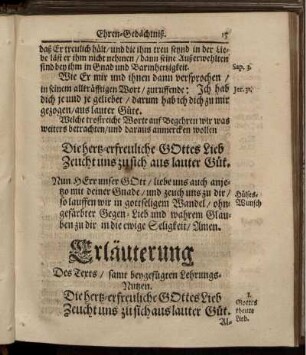 Ehren-Gedächtniß. 15
daß Er treulich hält / und die ihm treu seynd in der Lie-
be läst er ihm nicht nehmen / dann seine Außerwehlten
sind bey ihm in Gnad und Barmhertzigkeit. Sap. 3.
Wie Er mir und ihnen dann versprochen /
in seinem allkräfftigen Wort / zuruffende: Ich hab Jer. 31.
dich je und je geliebet / darum hab ich dich zu mir
gezogen / aus lauter Güte.
Welche trostreiche Worte auf Begehren wir was
weiters betrachten / und daraus anmercken wollen
Die hertz-erfreuliche GOttes Lieb
Zeucht uns zu sich aus lauter Güt.
Nun HErr unser GOtt / liebe uns auch anje-
zo mit deiner Gnade / und zeuch uns zu dir / Hülffs-
so lauffen wir in gottseligem Wandel / ohn Wunsch
gefärbter Gegen-Lieb und wahrem Glau-
ben zu dir in die ewige Seligkeit / Amen.
Erläuterung
Des Texts / samt beygefügten Lehrungs-
Nutzen.
Die hertz-erfreuliche GOttes Lieb 1.
Zeucht uns zu sich aus lauter Güt. Gottes
theure
Lieb.
Al-